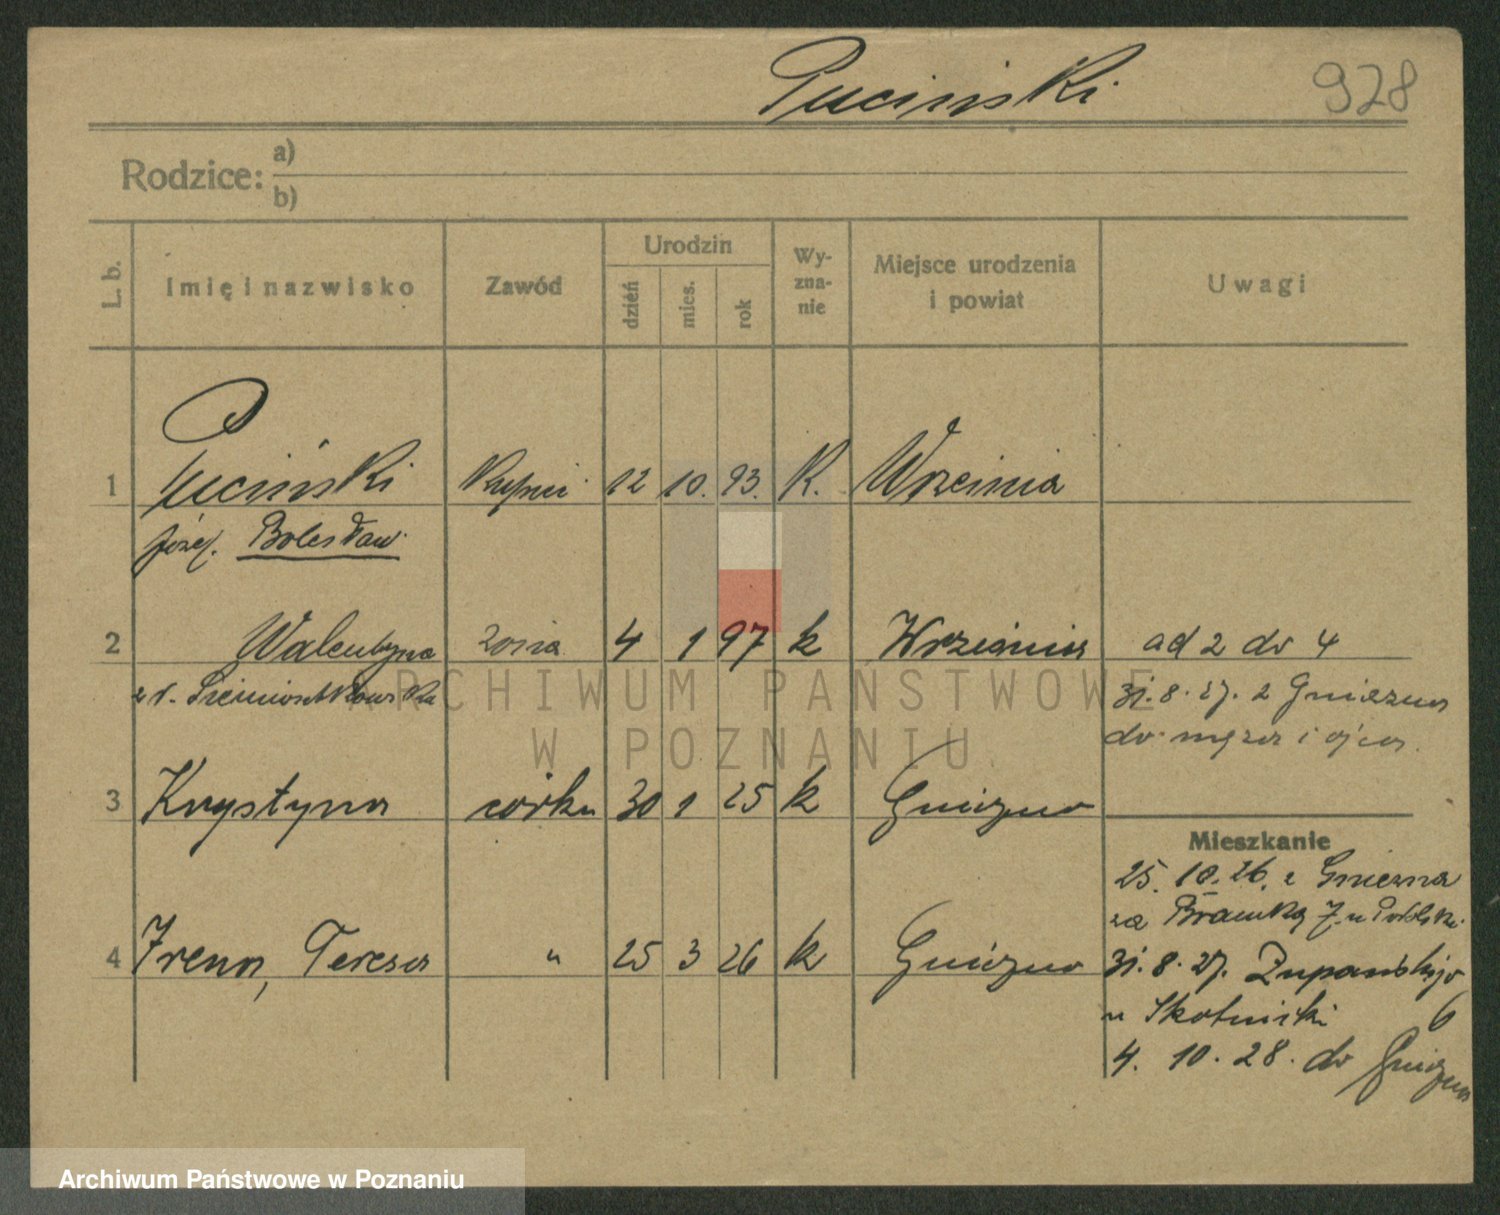 Puciński 928
Rodzice: a)
b)
L. b. Imię i nazwisko Zawód Urodzin dzień mies. rok Wyznanie Miejsce urodzenia i powiat Uwagi
1 Puciński 12 10. 93. K. Września
Józef. Bolesław
2 Walentyna żona 4 1 97 k Września ad 2 do 4
31. 8. 27. z Gniezna
do męża i ojca.
3 Krystyna córka 30 1 25 k Gniezno
Mieszkanie
25. 10. 26. z Gniezna
za Bramką 7.
4 Irena, Teresa " 25 3 26 k Gniezno 31. 8. 27. Żupańskiego
u Skotnicki 6
4. 10. 28. do Gniezna
ARCHIWUM PAŃSTWOWE
W POZNANIU
Archiwum Państwowe w Poznaniu